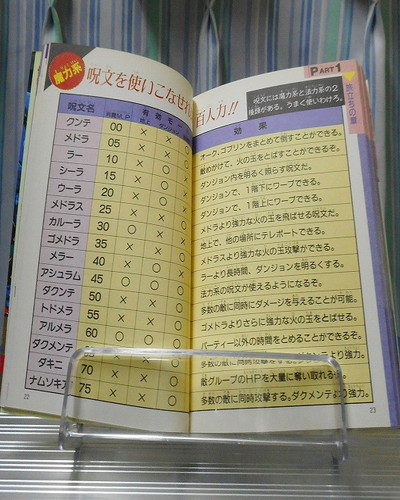 魔力系
呪文を使いこなせれ
百人力!!
PART1
呪文には魔力系と法力系の2
種類がある。うまく使いわけろ。
旅立ちの章
呪文名 消費M.P 有効モー 効果
クンテ 00 × × ○ オーク、ゴブリンをまとめて倒すことができる。
メドラ 05 × × ○ 敵めがけて、火の玉をとばすことができるぞ。
ラー 10 × ○ ダンジョン内を明るく照らす呪文だ。
シーラ 15 × ○ ダンジョンで、1階下にワープできる。
ウーラ 20 × ○ × ダンジョンで、1階上にワープできる。
メドラス 25 × × ○ メドラより強力な火の玉を飛ばせる呪文だ。
カルーラ 30 ○ × 地上で、他の場所にテレポートできる。
ゴメドラ 35 × × ○ メドラスより強力な火の玉攻撃ができる。
メラー 40 × ○ × ラーより長時間、ダンジョンを明るくする。
アシュラム 45 ○ ○ ○ 法力系の呪文が使えるようになるぞ。
ダクンテ 50 × × ○ 多数の敵に同時にダメージを与えることが可能。
トドメラ 55 × × ○ ゴメドラよりさらに強力な火の玉をとばせる。
アルメラ 60 ○ ○ ○ パーティー以外の時間をとめることができるぞ。
ダクメンテ 多数の敵に同時攻撃をする。より強力。
ダキニ 70 × × ○ 敵グループのHPを大量に奪い取れるぞ。
ナムソキ 75 × × ○ 多数の敵に同時攻撃する。ダクメンテより強力。
22
23